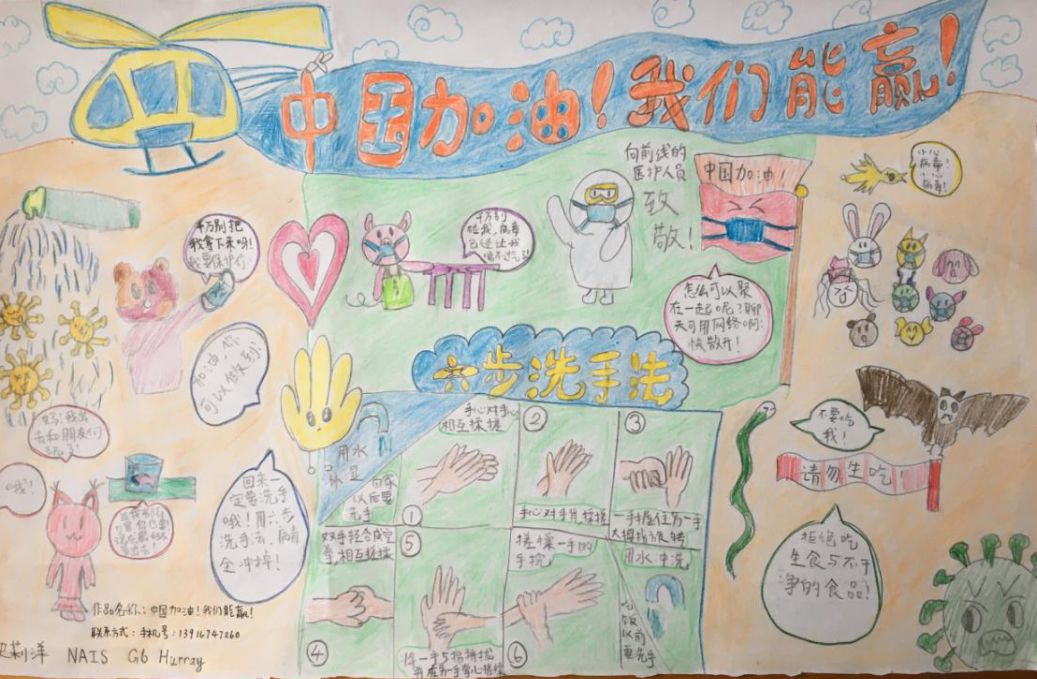 中国加油！我们能赢！
向前线的
医护人员
致
敬！
中国加油！
小心
病毒！
小心
病毒！
千万别把
我拿下来呀！
我要保护你！
千万别
吃我，病毒
已经让我
喘不过气了！
怎么可以聚
在一起呢？聊
天可用网络啊！
快散开！
加油，你
可以做到！
六步洗手法
妈！我出
去和朋友们
玩了！
哦！
回来一
定要洗手
哦！用六步
洗手法，病毒
全冲掉！
用水
以后要
洗手
①
手心对手心
相互揉搓
②
手心对手背揉搓
③
一手握住另一手
④
⑤
双手轻合成空
拳，相互揉搓
⑥
揉搓一手的
手腕
用水冲洗
吃饭
以前
要洗手
不要吃
我！
请勿生吃！
拒绝吃
生食与不干
净的食品！
作品名称：中国加油！我们能赢！
联系方式：手机号：13916747260
莉洋 NAIS G6 Hurray